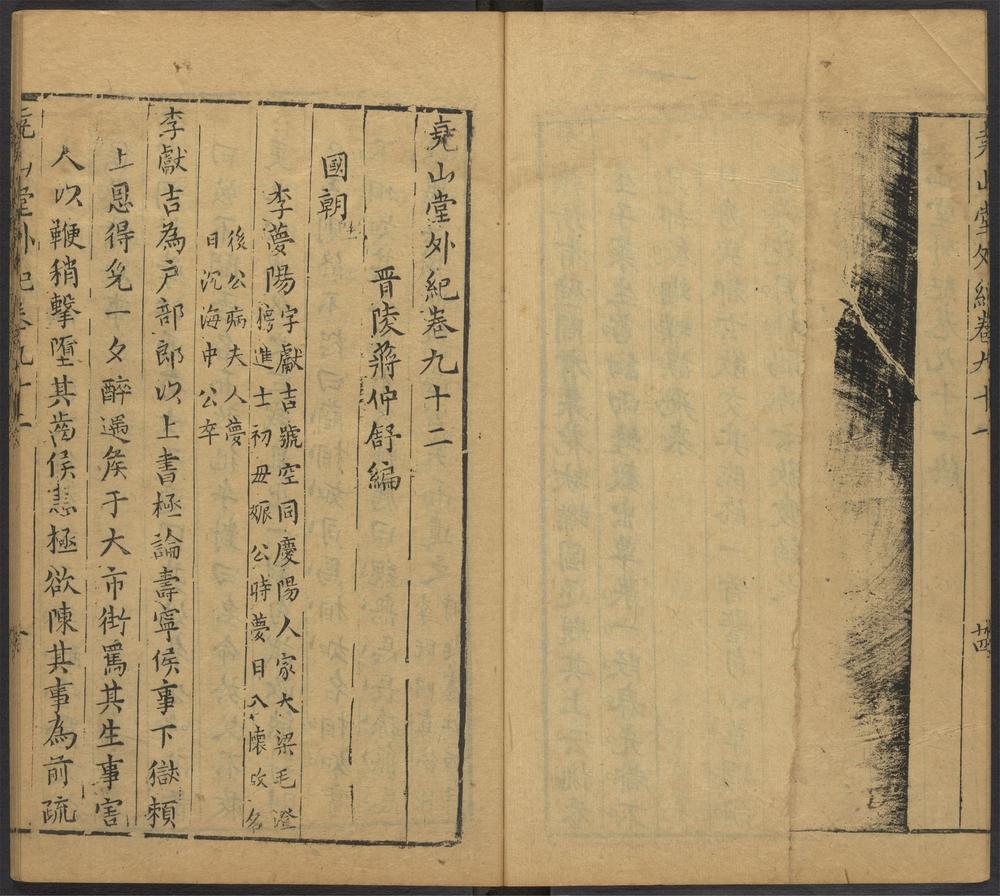 堯山堂外紀卷九十一
廿四
堯山堂外紀卷九十二
晋陵蔣仲舒編
國朝
李夢陽字獻吉號空同慶陽人家大梁毛澄
榜進士初毋娠公時夢日入懷故名
後公病夫人夢
日沉海中公卒
李獻吉為户部郎以上書極論壽寧侯事下獄賴
上恩得免一夕醉遇侯于大市街罵其生事害
人以鞭稍擊墮其齒侯恚極欲陳其事為前疏
堯山堂外紀卷九十二
一